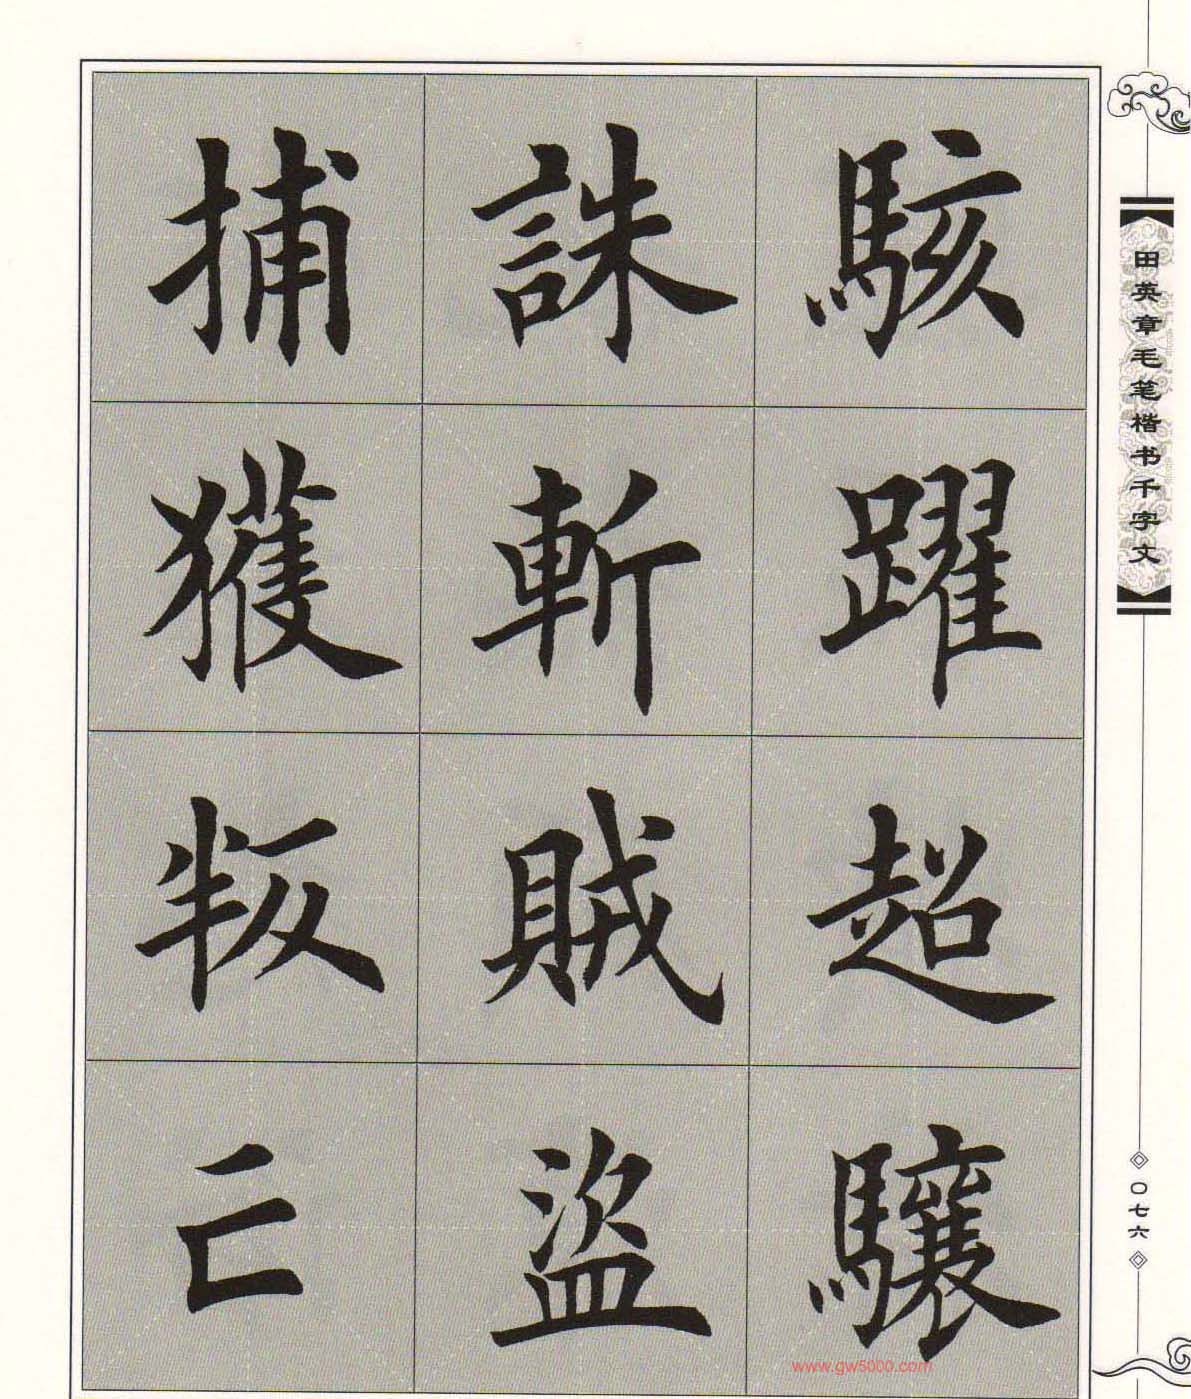 駭躍超驤
誅斬賊盜
捕獲叛亡
田英章毛笔楷书千字文
〇七六
www.gw5000.com